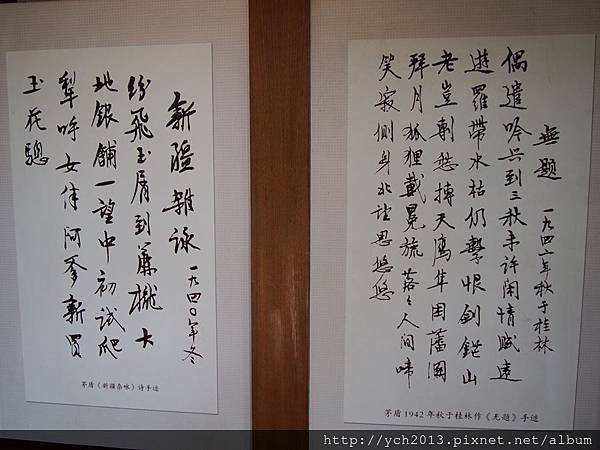 新疆雜詠 一九四〇年冬
纷飛玉屑到簾櫳大
地銀鋪一望中初試爬
犁呼女伴阿爹新買
玉花驄
茅盾《新疆杂咏》诗手迹
無題 一九四二年秋于桂林
偶遣吟兴到三秋未许闲情賦遠
遊羅帶水枯仍繫恨剑鋩山
老豈剸愁搏天鹰隼困藩溷
拜月狐狸戴冕旒落々人间啼
笑寂侧身北望思悠悠
茅盾 1942 年秋于桂林作《无题》手迹
http://ych2013.pixnet.net/album